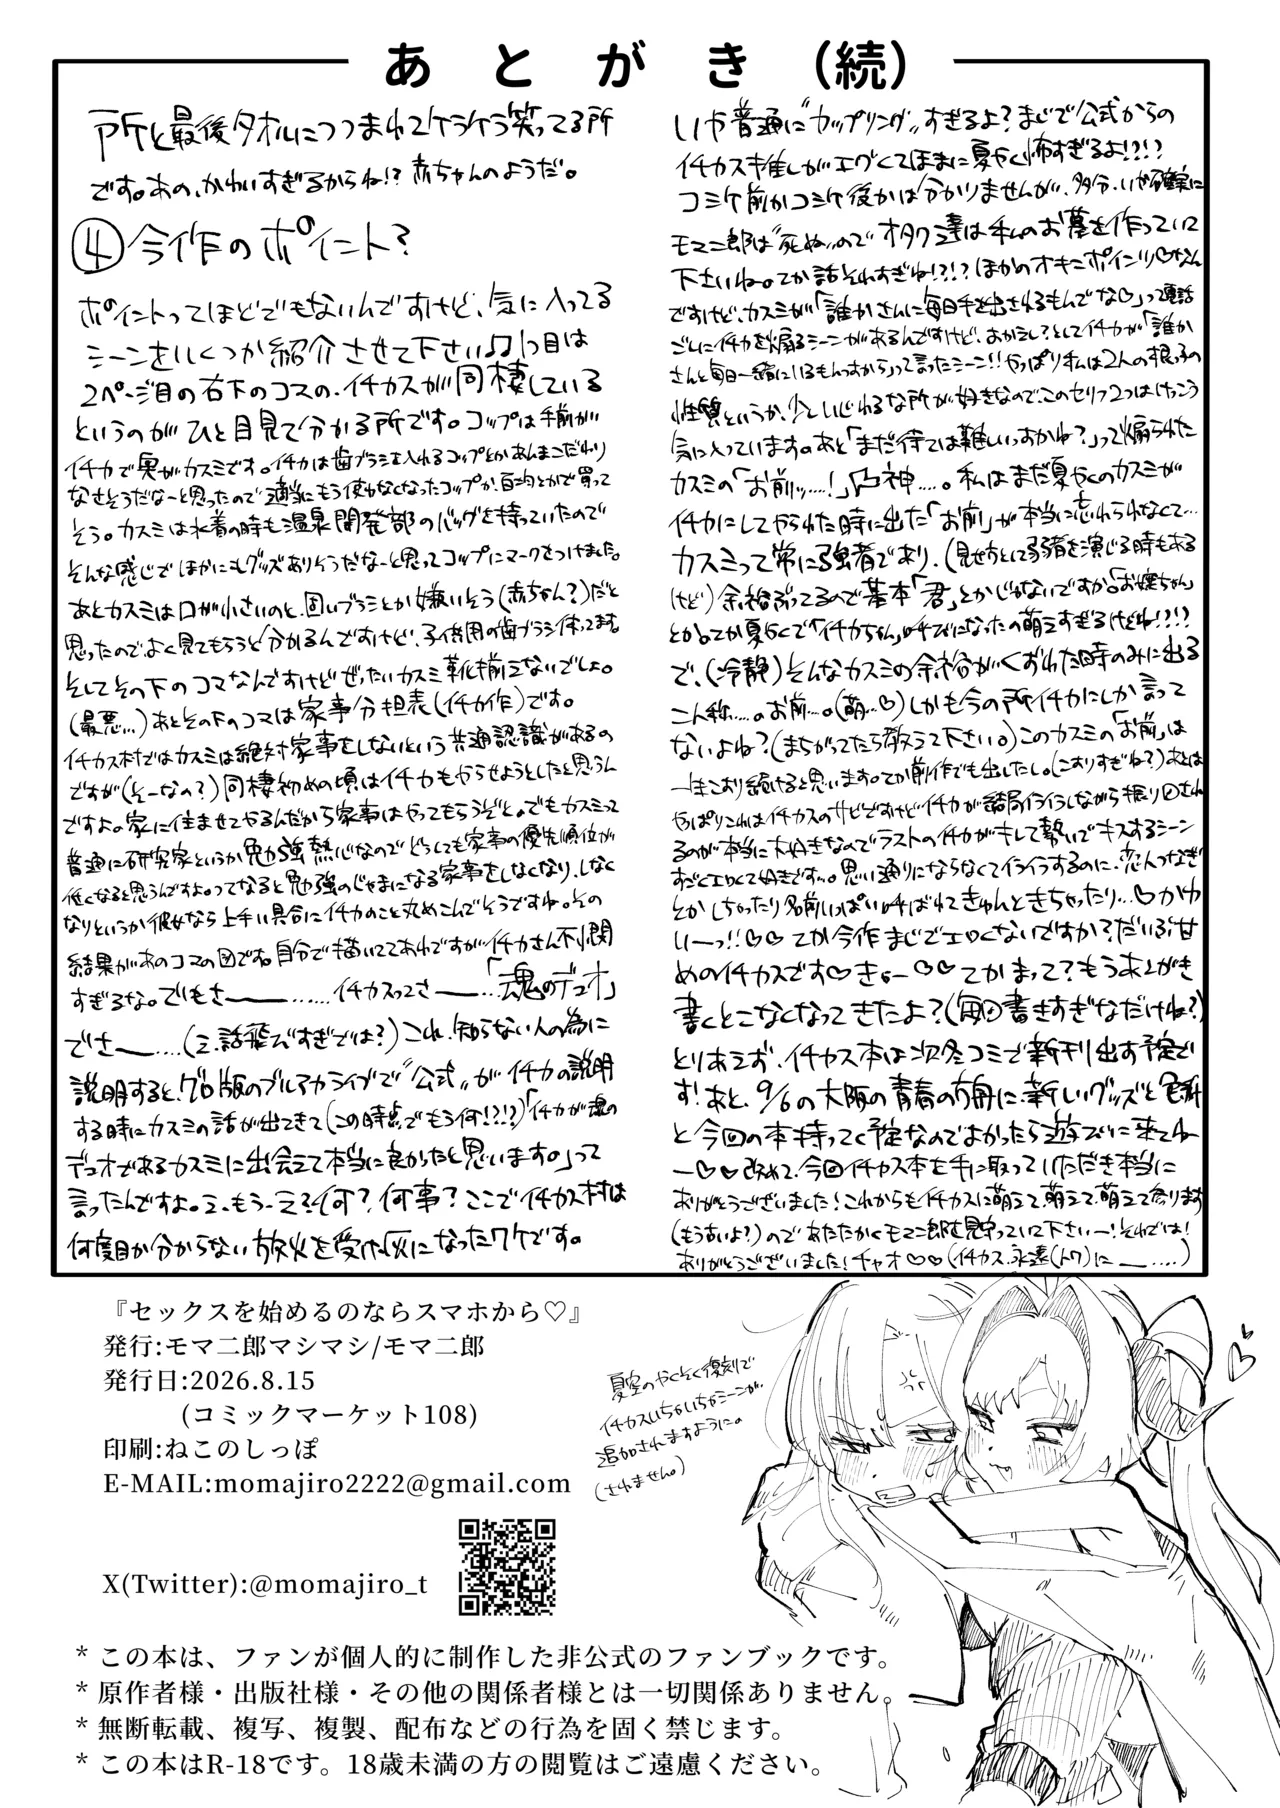 あとがき（続）
所と最後タオルにつつまれてケラケラ笑ってる所
です。あの、かわいすぎるからね!? 赤ちゃんのようだ。
④今作のポイント?
ポイントってほどでもないんですけど、気に入ってる
シーンをいくつか紹介させて下さい♫1つ目は
2ページ目の右下のコマの、イチカスが同棲している
というのがひと目見て分かる所です。コップは手前が
イチカで奥がカスミです。イチカは歯ブラシを入れるコップとかあんまこだわり
なさそうだなーと思ったので適当にもう使わなくなったコップか、百均とかで買って
そう。カスミは水着の時も温泉開発部のバッグを持っていたので
そんな感じでほかにもグッズありそうだなーと思ってコップにマークをつけました。
あとカスミは口が小さいのと、固いブラシとか嫌いそう(赤ちゃん?)だと
思ったのでよく見てもらうと分かるんですけど、子供用の歯ブラシ使ってます。
そしてその下のコマなんですけどぜったいカスミ靴揃えないでしょ。
(最悪…)あとその下のコマは家事分担表(イチカ作)です。
イチカス村ではカスミは絶対家事をしないという共通認識があるの
ですが(そーなの?)同棲初めの頃はイチカもやらせようとしたと思うん
ですよ。家に住ませてやるんだから家事はやってもらうぞと。でもカスミって
普通に研究家というか勉強熱心なのでどうしても家事の優先順位が
低くなると思うんですよ。ってなると勉強のじゃまになる家事をしなくなり、しなく
なりというか彼女なら上手い具合にイチカのこと丸めこんでそうですね。その
結果があのコマの図です。自分で描いててあれですがイチカさん不憫
すぎるな。でもさー……イチカスってさー…「魂のデュオ」
でさー…(え、話飛びすぎでは?)これ、知らない人の為に
説明すると、グロ版のブルアカライブで"公式"がイチカの説明
する時にカスミの話が出てきて(この時点でもう何!?!?)「イチカが魂の
デュオであるカスミに出会えて本当に良かったと思います。」って
言ったんですよ。え、もう…え?何?何事?ここでイチカス村は
何度目か分からない放火を受け灰になったワケです。
いや普通に"カップリング"すぎるよ?まじで公式からの
イチカス推しがエグくてほまに夏やく怖すぎるよ!?!?
コミケ前かコミケ後かは分かりませんが、多分、いや確実に
モマ二郎は"死ぬ"のでオタク達は私のお墓を作っていて
下さいね。てか話それすぎね!?!?ほかのオキニポインツ♡なん
ですけど、カスミが「誰かさんに毎日手を出されるもんでな♡」って電話
ごしにイチカを煽るシーンがあるんですけど、おかえし?としてイチカが「誰か
さんと毎日一緒にいるもんすから」って言ったシーン!!やっぱり私は2人の根っこの
性質というか、少しいじわるな所が好きなので、このセリフ2つはけっこう
気に入っています。あと「まだ待ては難しいっすかね?」って煽られた
カスミの「お前ッ…!」凸神…。私はまだ夏やくのカスミが
イチカにしてやられた時に出た「お前」が本当に忘れられなくて…
カスミって常に強者であり、(見せ方として弱者を演じる時もある
けど)余裕ぶってるので基本「君」とかじゃないですか。「お嬢ちゃん」
とか。てか夏やくで「イチカちゃん」呼びになったの萌えすぎるけどね!?!?
で、(冷静)そんなカスミの余裕がくずれた時のみに出る
二人称…。お前…。(萌…♡)しかも今の所イチカにしか言って
ないよね?(まちがってたら教えて下さい。)このカスミの「お前」は
一生こすり続けると思います。てか前作でも出したし。(こすりすぎね?)あとは
やっぱりこれはイチカスのサビですけどイチカが結局イライラしながら振り回され
るのが本当に大好きなのでラストのイチカがキレて勢いでキスするシーン
すごくエロくて好きです。思い通りにならなくてイライラするのに、恋人つなぎ
とかしちゃったり名前いっぱい呼ばれてきゅんときちゃったり…♡かわ
いーっ!!♡♡てか今作まじでエロくないですか?だいぶ甘
めのイチカスです♡きゃー♡♡てかまって?もうあとがき
書くとこなくなってきたよ?(毎回書きすぎなだけね?)
とりあえず、イチカス本は次冬コミで新刊出す予定で
す!あと、9/6の大阪の青春の方舟に新しいグッズと
と今回の本持ってく予定なのでよかったら遊びに来てね
ー♡♡改めて、今回イチカス本を手に取っていただき本当に
ありがとうございました!これからもイチカスに萌えて、萌えて、萌えて参ります
(もう古いよ?)のであたたかくモマ二郎を見守っていて下さいー!それでは!
ありがとうございました!チャオ♡♡(イチカス、永遠(トワ)に ー…)
『セックスを始めるのならスマホから♡』
発行:モマ二郎マシマシ/モマ二郎
発行日:2026.8.15
(コミックマーケット108)
印刷:ねこのしっぽ
E-MAIL:momajiro2222@gmail.com
X(Twitter):@momajiro_t
夏空のやくそく復刻で
イチカスいちゃいちゃシーンが
追加されますように。
(されません。)
* この本は、ファンが個人的に制作した非公式のファンブックです。
* 原作者様・出版社様・その他の関係者様とは一切関係ありません。
* 無断転載、複写、複製、配布などの行為を固く禁じます。
* この本はR-18です。18歳未満の方の閲覧はご遠慮ください。